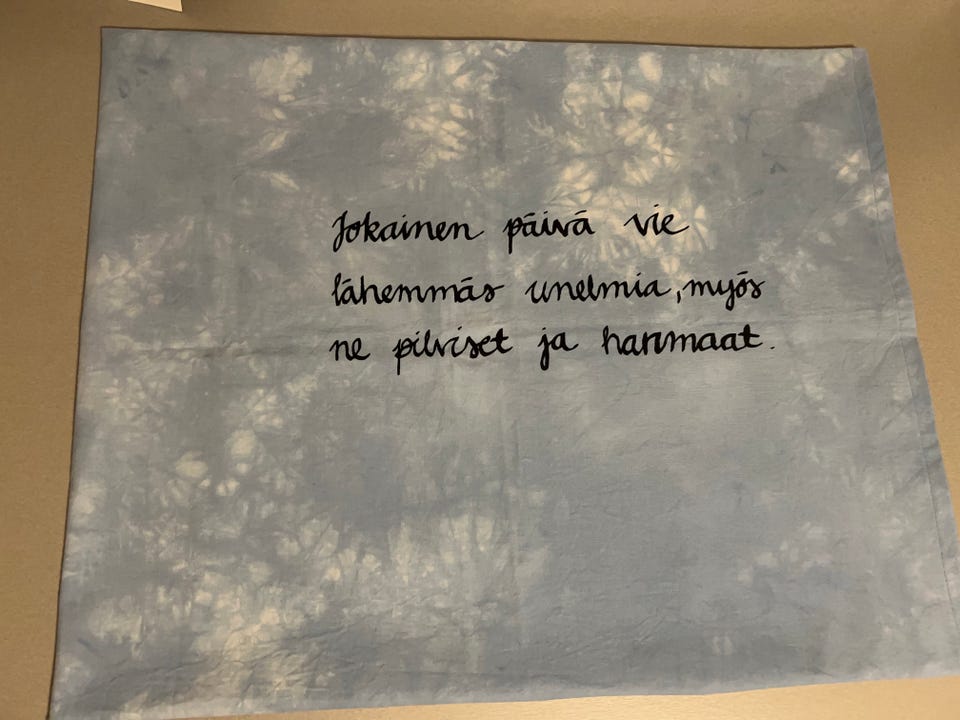 Jokainen päivä vie
lähemmäs unelmia, myös
ne pilviset ja harmaat.